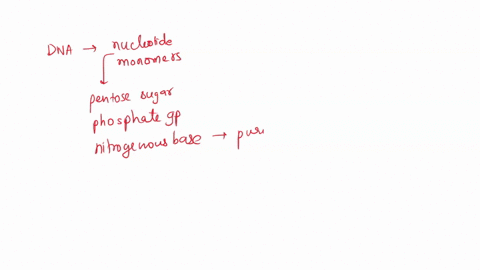 DNA → nucleotide
monomers
pentose sugar
phosphate gp
nitrogenous base → puri